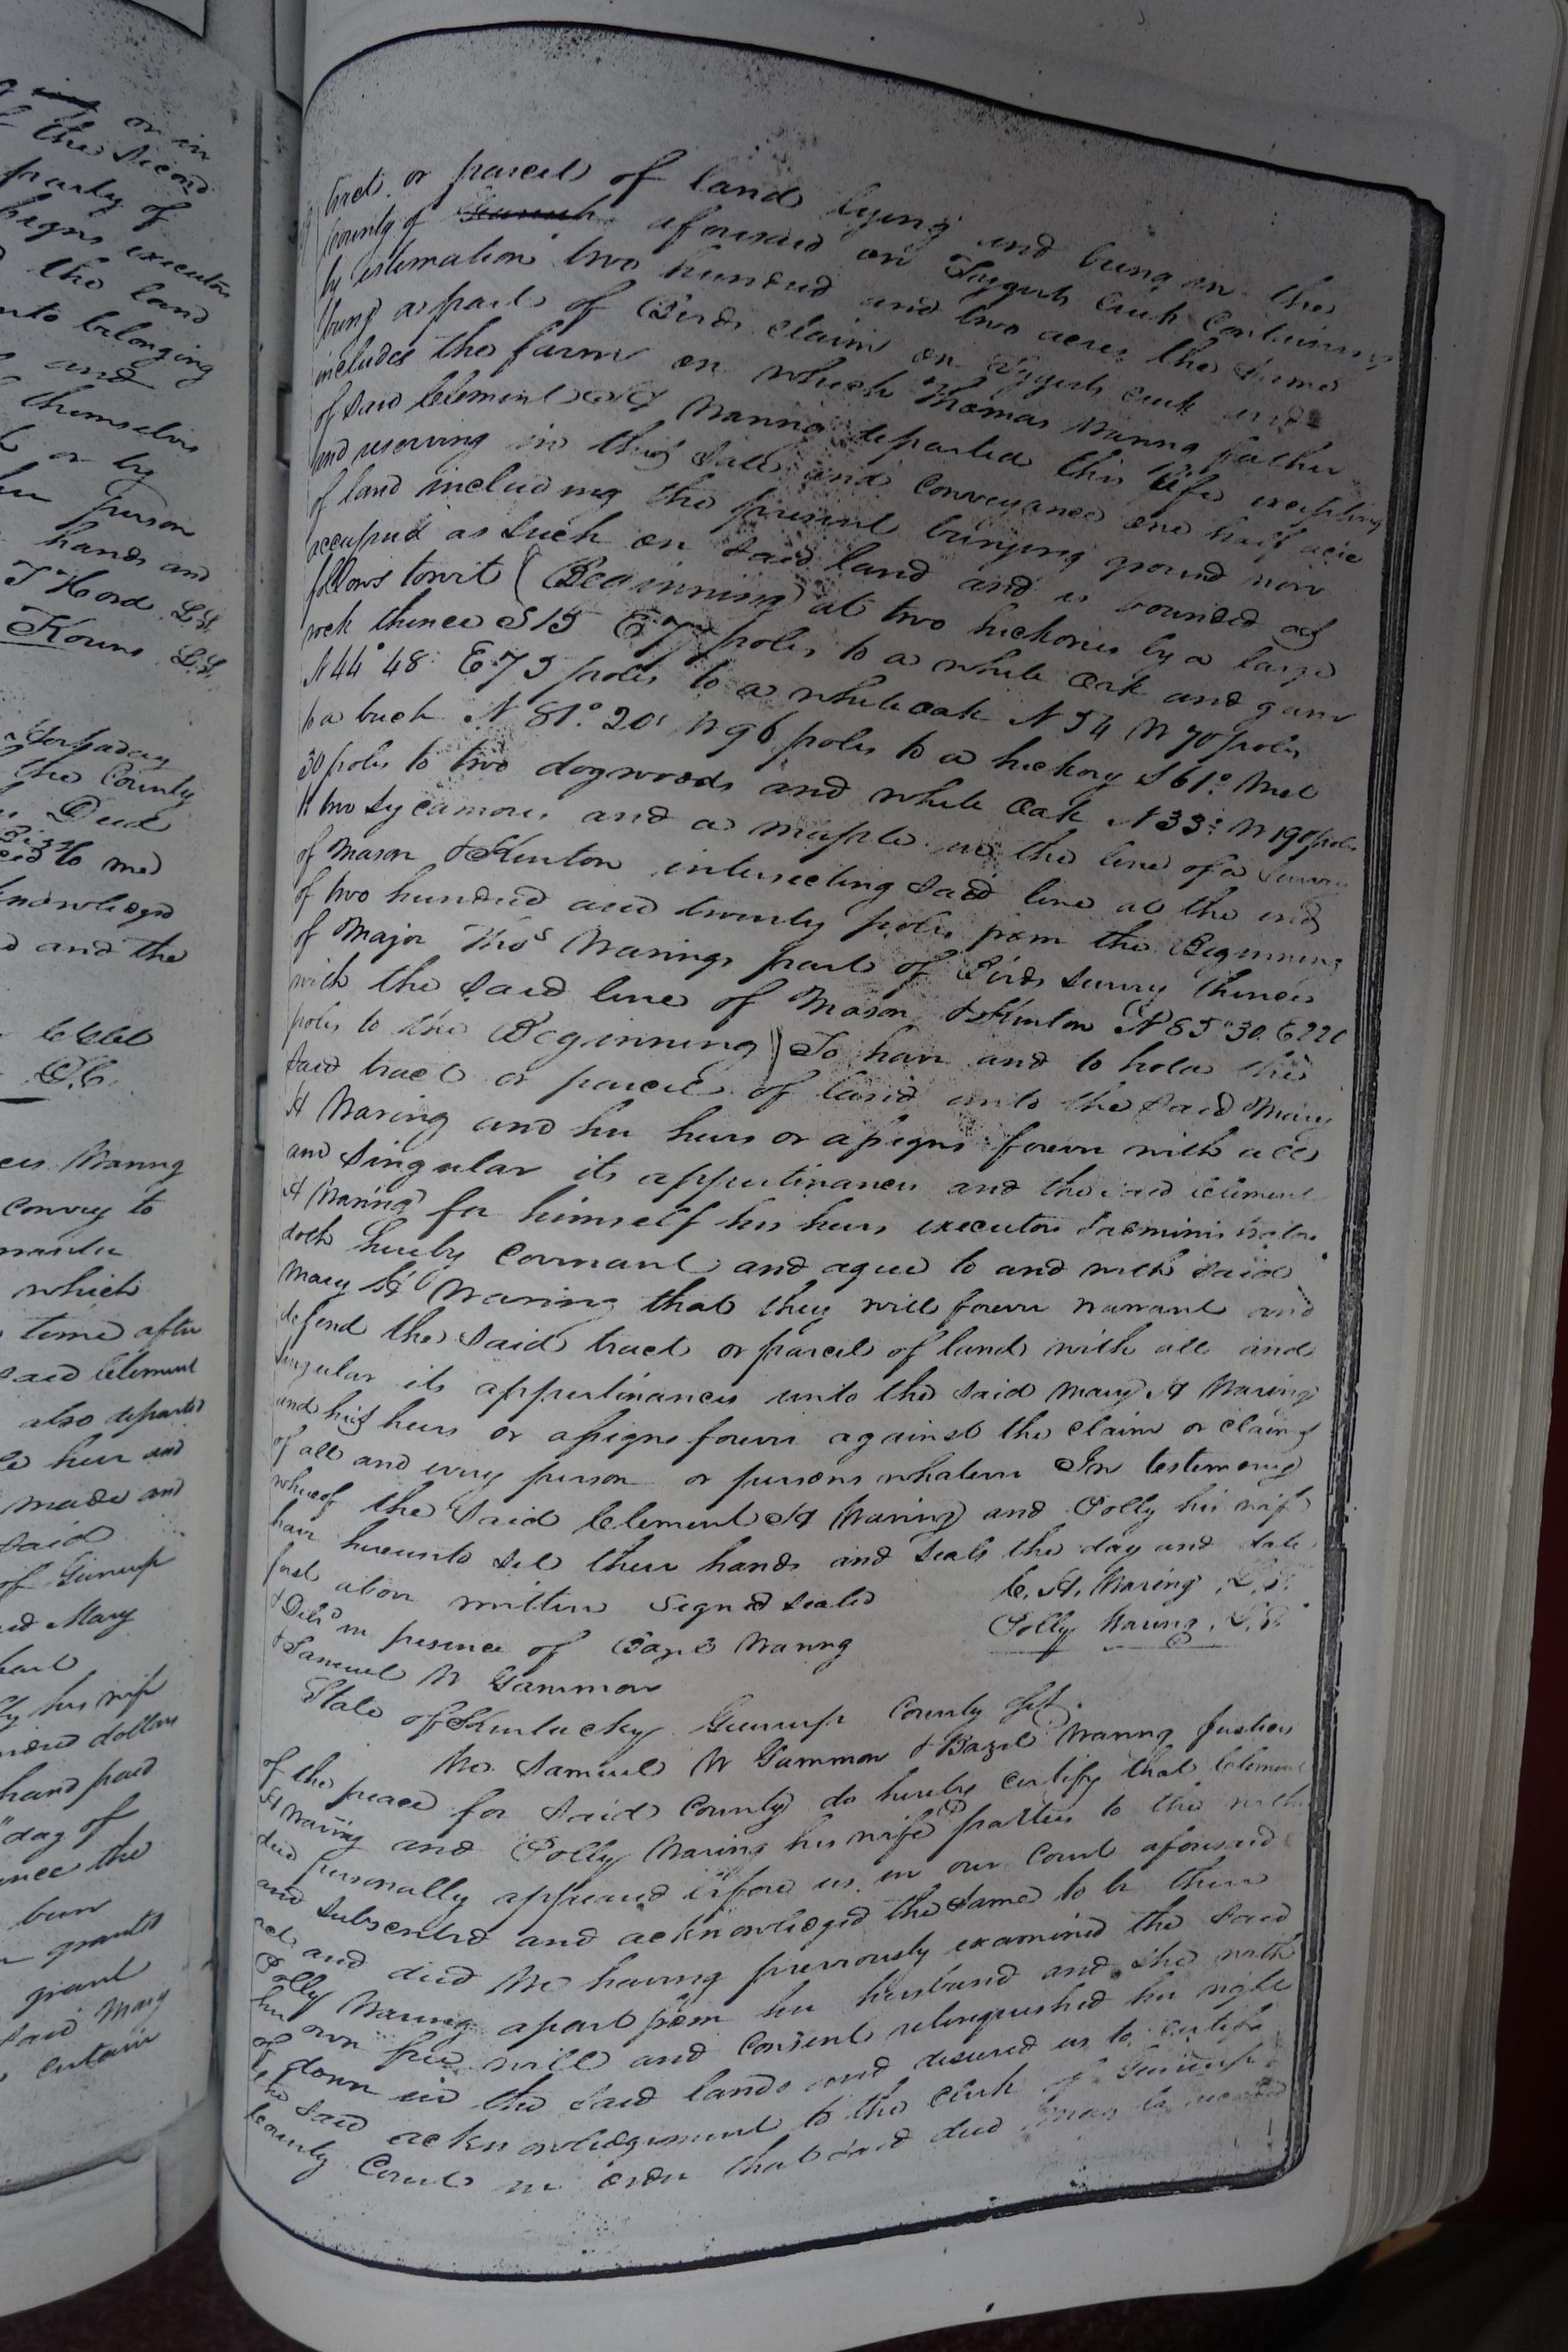 or in
of the Second
party of
assigns executors
the land
unto belonging
and
themselves
or by
person
hands and
T Hord L.S.
Kouns L.S.
the County
Deed
to me
acknowledged
and the
C.C.
Waring
Convey to
which
time after
said Clement
also departed
heir and
made and
said
of Greenup
Mary
his wife
dollars
hand paid
day of
the
been
grants
grant
said Mary
certain
tract or parcel of land lying and being in the
County of Greenup aforesaid on Tygerts Creek Containing
by estimation two hundred and two acres the same
being a part of Birds claim on Tygerts creek and
includes the farm on which Thomas Waring father
of said Clement A Waring departed this life excepting
and reserving in this sale and Conveyance one half acre
of land including the present burying ground now
occupied as such on said land and is bounded as
follows towit (Beginning at two hickories by a large
rock thence S 15 E 7 poles to a white Oak and gum
N 44° 48' E 75 poles to a white oak N 54 W 70 poles
to a buck N 81° 20' W 96 poles to a hickory S 61° West
30 poles to two dogwoods and white Oak N 33° W 190 poles
to two sycamores and a maple in the line of a survey
of Mason & Kenton intersecting said line at the end
of two hundred and twenty poles from the Beginning
of Major Thos Warings part of Birds survey thence
with the said line of Mason & Kenton N 85° 30 E 220
poles to the Beginning) To have and to hold the
said tract or parcel of land unto the said Mary
A Waring and her heirs or assigns forever with all
and singular its appurtinances and the said Clement
A Waring for himself his heirs executors & administrators
doth hereby Covenant and agree to and with said
Mary A Waring that they will forever warrant and
defend the said tract or parcel of land with all and
singular its appurtinances unto the said Mary A Waring
and his heirs or assigns forever against the claim or claims
of all and every person or persons whatever In testimony
whereof the said Clement A Waring and Polly his wife
have hereunto set their hands and seals the day and date
first above written Signed sealed C. A. Waring L.S.
& Delid in presence of Bazil Waring Polly Waring L.S.
& Samuel W Gammon
State of Kentucky Greenup County Sct.
We Samuel W Gammon & Bazil Waring Justices
of the peace for said County do hereby certify that Clement
A Waring and Polly Waring his wife parties to the within
deed personally appeared before us in our County aforesaid
and subscribed and acknowledged the same to be their
act and deed We having previously examined the said
Polly Waring apart from her husband and she with
her own free will and Consent relinquished her right
of dower in the said lands and desired us to certify
the said acknowledgement to the Clerk of Greenup
County Court in order that said deed may be recorded